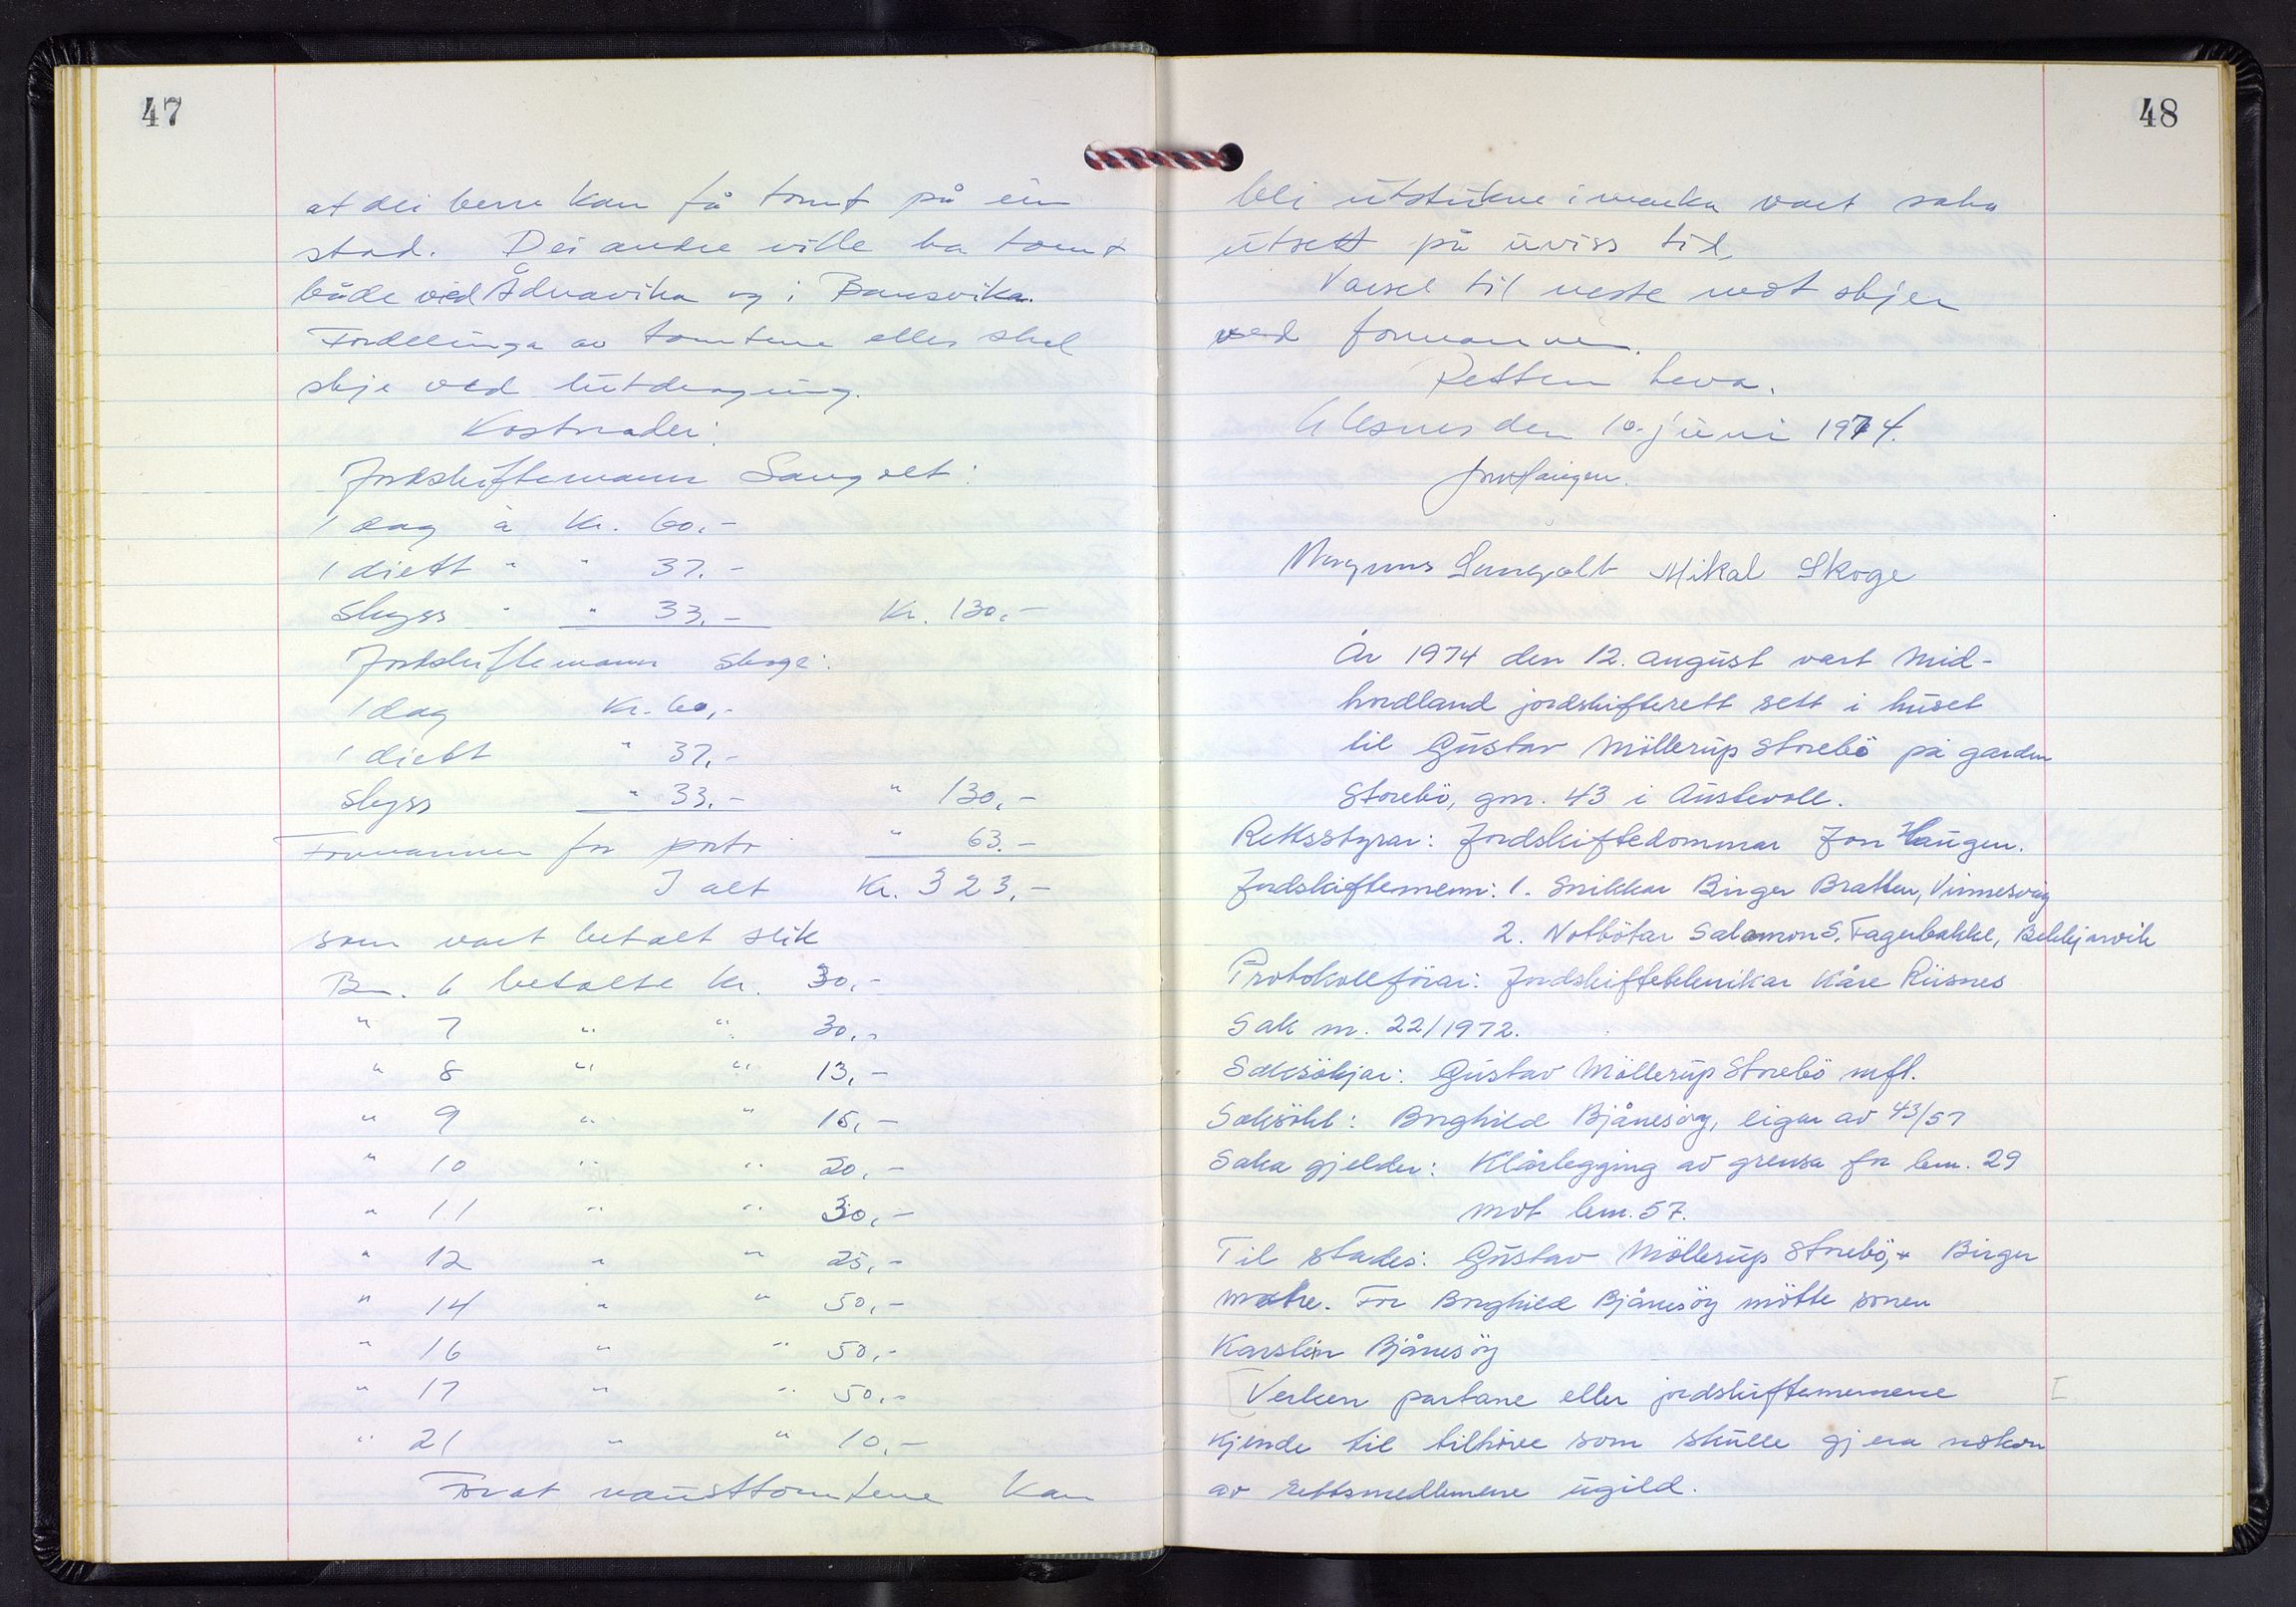 47
at dei berre kan få tomt på ein
stad. Dei andre ville ha tomt
både ved Ådnavika og i Bansvika.
Fordelinga av tomtene elles skal
skje ved lutdraging.
Kostnader:
Jordskiftemann Sangolt:
1 dag à kr. 60,-
1 diett " " 37.-
Skyss " " 33,- Kr. 130,-
Jordskiftemann Skoge:
1 dag Kr. 60,-
1 diett " 37,-
Skyss " 33.- " 130,-
Formannen for porto " 63.-
I alt Kr. 323,-
som vart betalt slik
Bn. 6 betalte kr. 30,-
" 7 " " 30,-
" 8 " " 13,-
" 9 " " 15,-
" 10 " " 20,-
" 11 " " 30,-
" 12 " " 25,-
" 14 " " 50,-
" 16 " " 50,-
" 17 " " 50,-
" 21 " " 10,-
For at nausttomtene kan
48
bli utstukne i marka vart saka
utsett på uviss tid.
Varsel til neste møt skjer
ved formannen.
Retten heva.
den 10. juni 1974.
Jon Haugen.
Magnus Sangolt Mikal Skoge
År 1974 den 12. august vart Mid-
hordland jordskifterett sett i huset
til Gustav Möllerup Storebö på garden
Storebö, gnr. 43 i Austevoll.
Rettsstyrar: Jordskiftedommar Jon Haugen.
Jordskiftemenn: 1. Snikkar Birger Bratten, Vinnesvåg
2. Notbötar Salamon S. Fagerbakke, Bekkjarvik
Protokollförar: Jordskifteteknikar Kåre Riisnes
Sak nr. 22/1972.
Saksökjar: Gustav Möllerup Storebö mfl.
Saksökt: Borghild Bjånesöy, eigar av 43/57
Saka gjelder: Klårlegging av grensa for bnr. 29
mot bnr. 57.
Til stades: Gustav Möllerup Storebö, + Birger
. For Borghild Bjånesöy mötte sonen
Karstein Bjånesöy
[Verken partane eller jordskiftemennene I
kjende til tilhöve som skulle gjera nokon
av rettsmedlemene ugild.